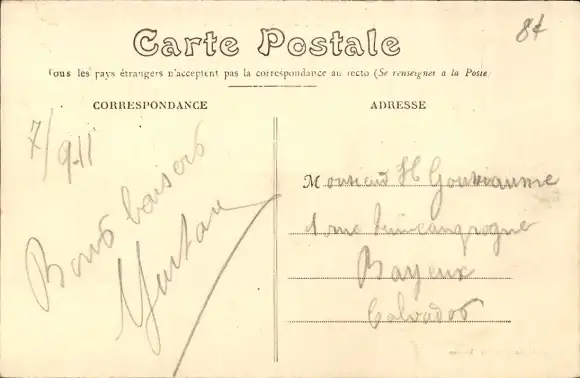 8f
Carte Postale
Tous les pays étrangers n'acceptent pas la correspondance au recto (Se renseigner a la Poste)
CORRESPONDANCE
ADRESSE
7/9-11
Bons baisers
Gustave
Monsieur H
1 rue
Bayeux
Calvados